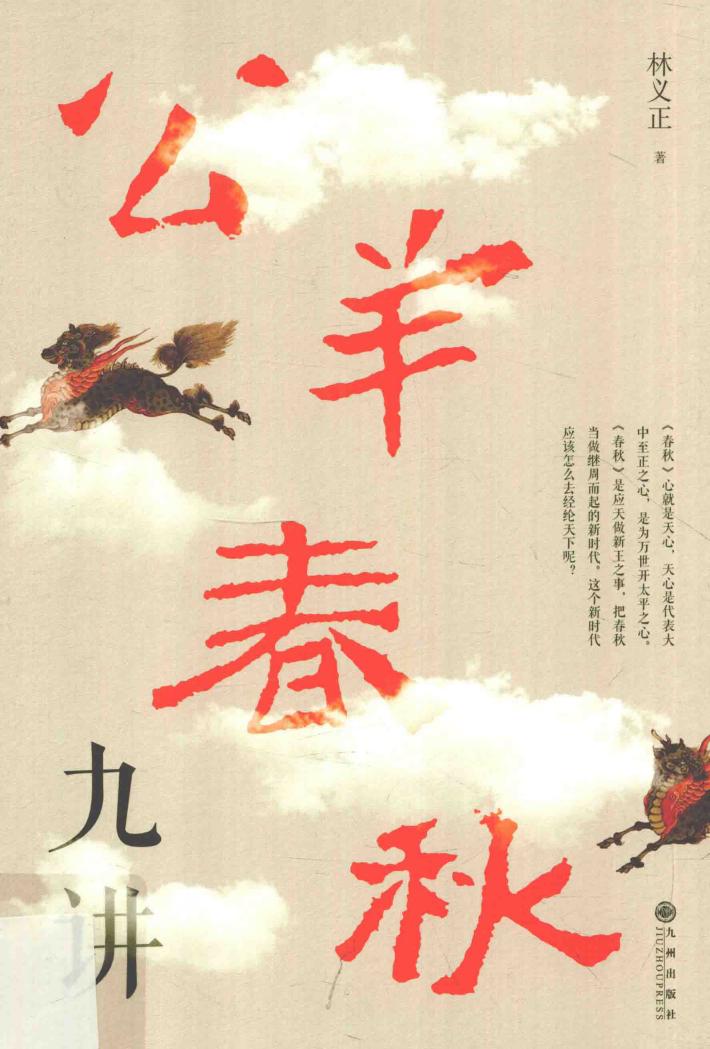 公羊春秋
九讲
林义正 著
《春秋》心就是天心，天心是代表大
中至正之心，是为万世开太平之心。
《春秋》是应天做新王之事，把春秋
当做继周而起的新时代。这个新时代
应该怎么去经纶天下呢？
九州出版社
JIUZHOUPRESS